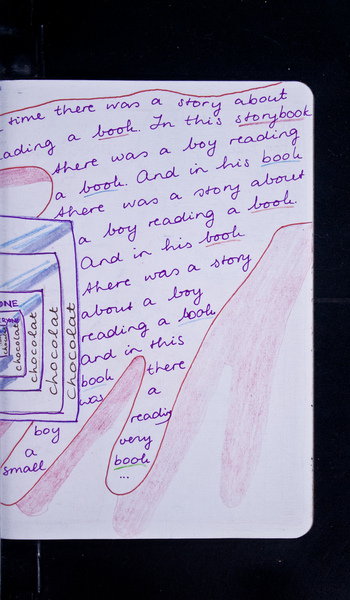 time there was a story about
ading a book. In this storybook
there was a boy reading
a book. And in his book
there was a story about
a boy reading a book.
And in his book
there was a story
about a boy
reading a book
And in this
book there
was a
boy reading
a very
small book
...
ONE
chocolat
chocolat
chocolat
chocolat